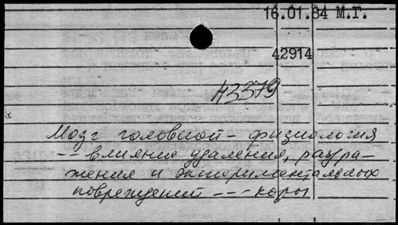 16.01.84 М.Г.
42914
43379
Мозг головной - физиология
-- влияние удаления, раздра-
жения и экспериментальных
повреждений --- коры